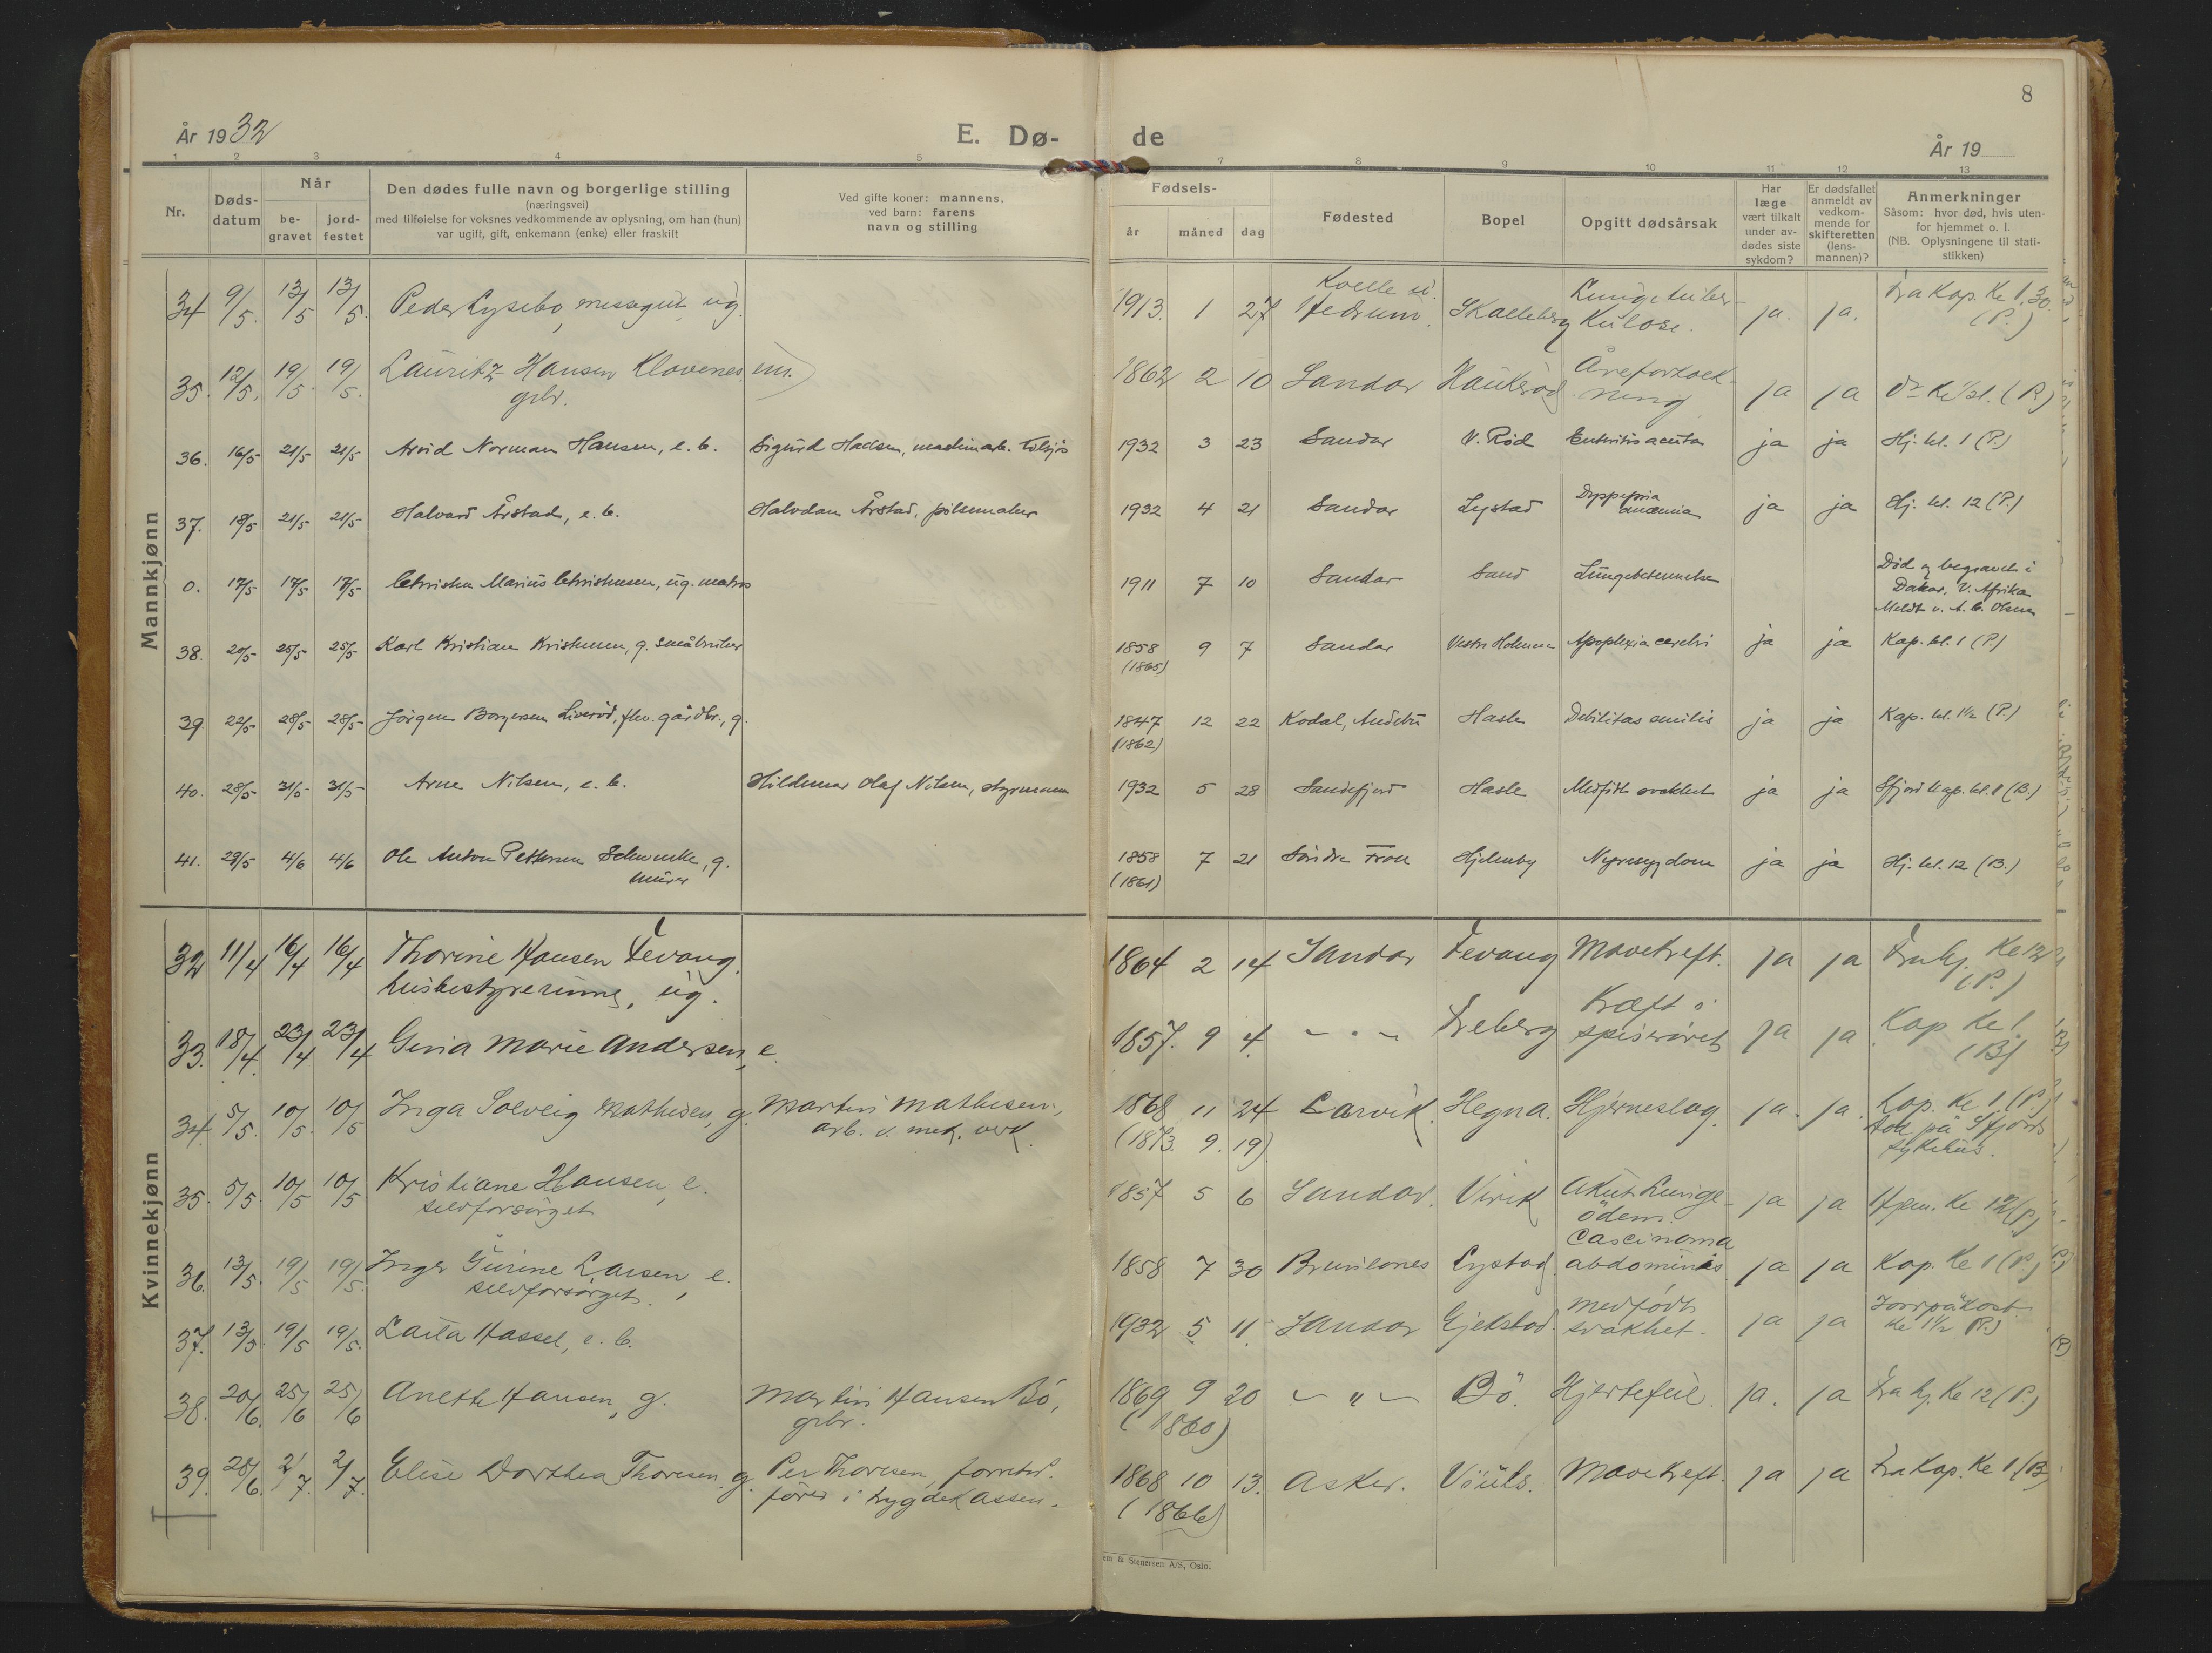 8
År 1932
E. Dø-
de
År 19
1 2 3 4 5 7 8 9 10 11 12 13
Nr.
Døds-
datum
Når
be-
gravet
jord-
festet
Den dødes fulle navn og borgerlige stilling
(næringsvei)
med tilføielse for voksnes vedkommende av oplysning, om han (hun)
var ugift, gift, enkemann (enke) eller fraskilt
Ved gifte koner: mannens,
ved barn: farens
navn og stilling
Fødsels-
år måned dag
Fødested
Bopel
Opgitt dødsårsak
Har
læge
vært tilkalt
under av-
dødes siste
sykdom?
Er dødsfallet
anmeldt av
vedkom-
mende for
skifteretten
(lens-
mannen)?
Anmerkninger
Såsom: hvor død, hvis uten-
for hjemmet o. l.
(NB. Oplysningene til stati-
stikken)
Mannkjønn
34 9/5. 13/5 13/5. Peder Lysebo, messegut, ug. 1913. 1 27 Kvelle i Hedrum. Skalleberg Lungetuber-
kulose. ja. ja. fra Kap. Kl 1.30
(P.)
35. 12/5. 19/5. 19/5. Lauritz Hansen Klavenes, em.
gbr. 1862 2 10 Sandar Haukerød Åreforkalk-
ning ja ja (P.)
36. 16/5 21/5 21/5 Arvid Norman Hansen, e. b. Sigurd Hansen, maskinarb. 1932 3 23 Sandar V. Rød Enteritis acuta ja ja Hj. kl. 1 (P.)
37. 18/5 21/5 21/5 Halvard Årstad, e. b. Halvdan Årstad, 1932 4 21 Sandar Lystad anæmia ja ja Hj. kl. 12 (P.)
0. 17/5 17/5 17/5 Christen Marius Christensen, ug. matros 1911 7 10 Sandar Sand Lungebetennelse Død og begravet i
Dakar, V. Afrika
Meldt v. A. C. Olsen
38. 20/5 25/5 25/5 Karl Kristian Kristensen, g. småbruker 1858 9 7 Sandar Vestre Holmen Apoplexia cerebri ja ja Kap. kl. 1 (P.)
(1865)
39. 22/5 28/5 28/5 Jørgen Borgersen Liverød, fhv. gårdbr., g. 1847 12 22 Kodal, Andebu Hasle Debilitas senilis ja ja Kap. kl. 1½ (P.)
(1862)
40. 28/5 31/5 31/5 Arne Nilsen, e. b. Hildemar Olaf Nilsen, styrmann 1932 5 28 Sandefjord Hasle Medfødt svakhet ja ja Sfjord Kap. kl. 1 (B.)
41. 29/5 4/6 4/6 Ole Anton Pettersen Schwencke, g.
murer 1858 7 21 Søndre Fron Hjelmby Nyresygdom ja ja Hj. kl. 12 (B.)
(1861)
Kvinnekjønn
32 11/4 16/4 16/4 Thorine Hansen Fevang.
husbestyrerinne, ug. 1864 2 14 Sandar Fevang Mavekreft. ja ja fra hj. Kl 12
(P.)
33. 18/4. 23/4 23/4 Gina Marie Andersen, e. 1857. 9 4. - " - Freberg Kræft i
spiserøret ja ja Kap Kl 1.
(B)
34. 5/5. 10/5. 10/5 Inga Solveig Mathisen, g. Martin Mathisen,
arb. v. mek. verk. 1868 11 24 Larvik. Hegna. Hjerneslag. ja. ja. Kap. Kl 1 (P.)
(1873. 9. 19). død på Sfjords
sykehus.
35. 5/5. 10/5 10/5 Kristiane Hansen, e.
selvforsørget 1857 5 6 Sandar. Virik Akut Lunge-
ødem. ja ja Hjem. Kl 12 (P.)
36. 13/5. 19/5 19/5. Inger Gurine Larsen, e.
selvforsørget. 1858 7 30 Brunlanes Lystad. Carcinoma
abdominis ja ja Kap. Kl 1 (P.)
37. 13/5 19/5 19/5. Laila Hassel, e. b. 1932 5 11. Sandar Gjekstad. medfødt
svakhet. ja ja Jordpåkast
Kl 1½ (P.)
38. 20/6. 25/6 25/6 Anette Hansen, g. Martin Hansen Bø,
gbr. 1869 9 20 - " - Bø. Hjertefeil. ja. ja fra hj. Kl 12 (P.)
(1860)
39. 28/6. 2/7. 2/7. Elise Dorthea Thoresen, g. Per Thoresen, forretn.
fører i trygdekassen. 1868 10 13. Asker. Mavekreft. ja ja fra Kap. Kl 1. (B)
(1866)
em & Stenersen A/S, Oslo.